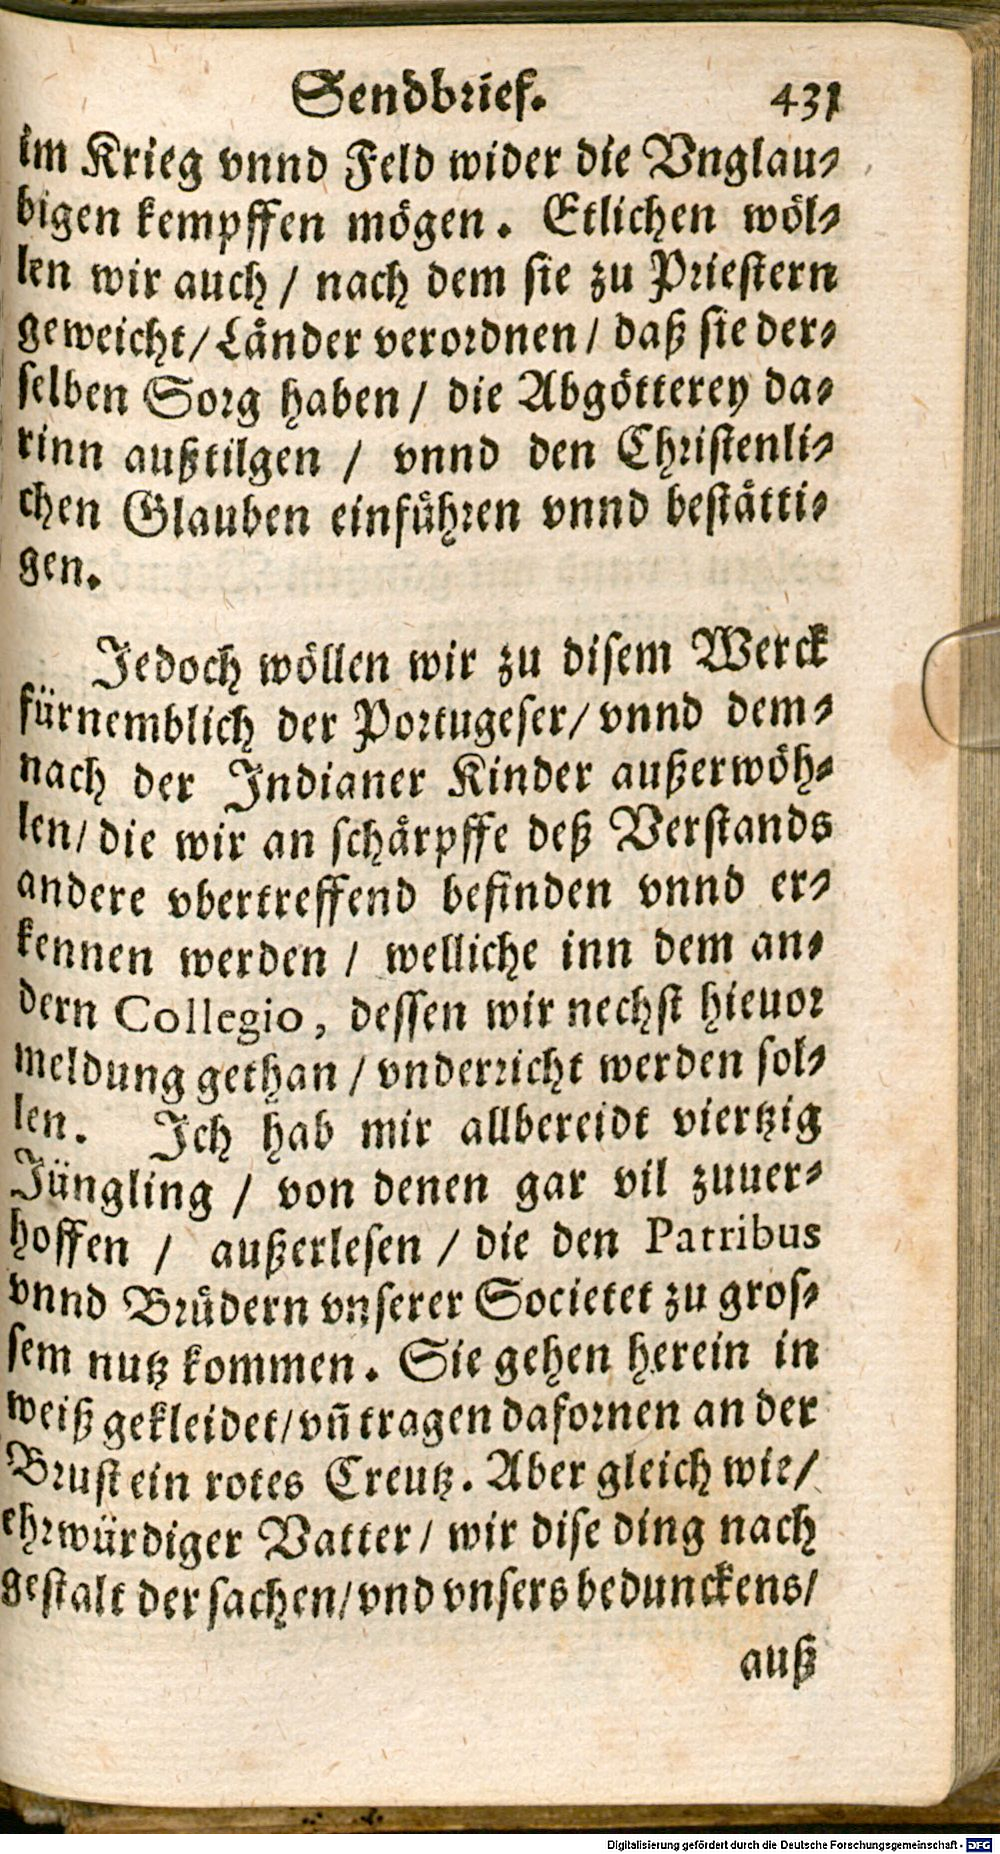 Sendbrief. 431
im Krieg vnnd Feld wider die Vnglau⸗
bigen kempffen mögen. Etlichen wöl⸗
len wir auch / nach dem sie zu Priestern
geweicht/ Länder verordnen / daß sie der⸗
selben Sorg haben / die Abgötterey da⸗
rinn außtilgen / vnnd den Christenli⸗
chen Glauben einführen vnnd bestätti⸗
gen.
Jedoch wöllen wir zu disem Werck
fürnemblich der Portugeser/ vnnd dem⸗
nach der Indianer Kinder außerwöh⸗
len/ die wir an schärpffe deß Verstands
andere vbertreffend befinden vnnd er⸗
kennen werden / welliche inn dem an⸗
dern Collegio, dessen wir nechst hieuor
meldung gethan / vnderricht werden sol⸗
len. Ich hab mir allbereidt viertzig
Jüngling / von denen gar vil zuuer⸗
hoffen / außerlesen / die den Patribus
vnnd Brüdern vnserer Societet zu gros⸗
sem nutz kommen. Sie gehen herein in
weiß gekleidet/ vñ tragen dafornen an der
Brust ein rotes Creutz. Aber gleich wie/
ehrwürdiger Vatter / wir dise ding nach
gestalt der sachen/ vnd vnsers bedunckens/
auß
Digitalisierung gefördert durch die Deutsche Forschungsgemeinschaft - DFG